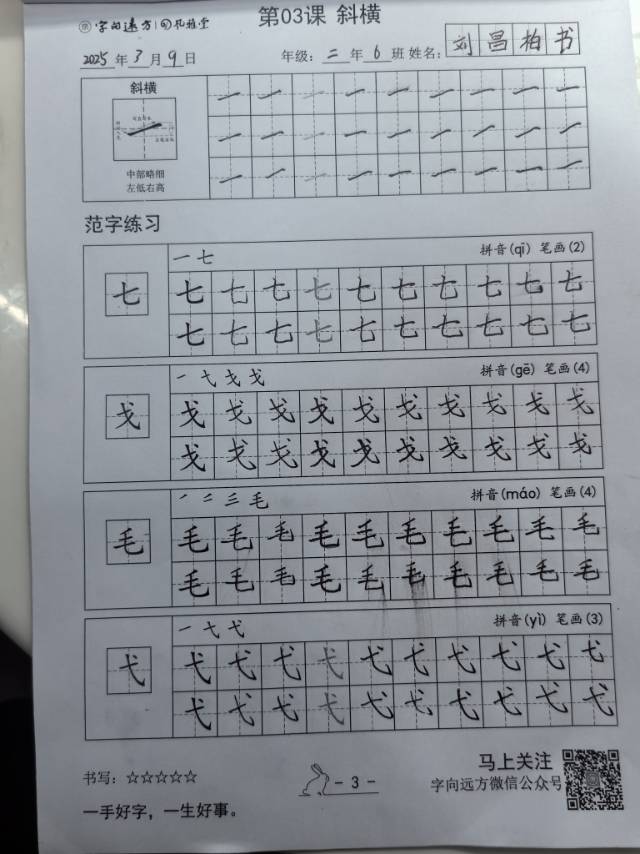 字向远方 孔雅堂 第03课 斜横
2025年3月9日 年级：二年6班 姓名：刘昌柏书
斜横
中部略细
左低右高
范字练习
一七 拼音(qī) 笔画(2)
七 七七七七七七七七七七
七七七七七七七七七七
一弋戈戈 拼音(gē) 笔画(4)
戈 戈戈戈戈戈戈戈戈戈戈
戈戈戈戈戈戈戈戈戈戈
拼音(máo) 笔画(4)
毛 毛毛毛毛毛毛毛毛毛毛
毛毛毛毛毛毛毛毛毛毛
一七弋 拼音(yì) 笔画(3)
弋 弋弋弋弋弋弋弋弋弋弋
弋弋弋弋弋弋弋弋弋弋
书写：☆☆☆☆☆ - 3 - 马上关注
一手好字，一生好事。 字向远方微信公众号